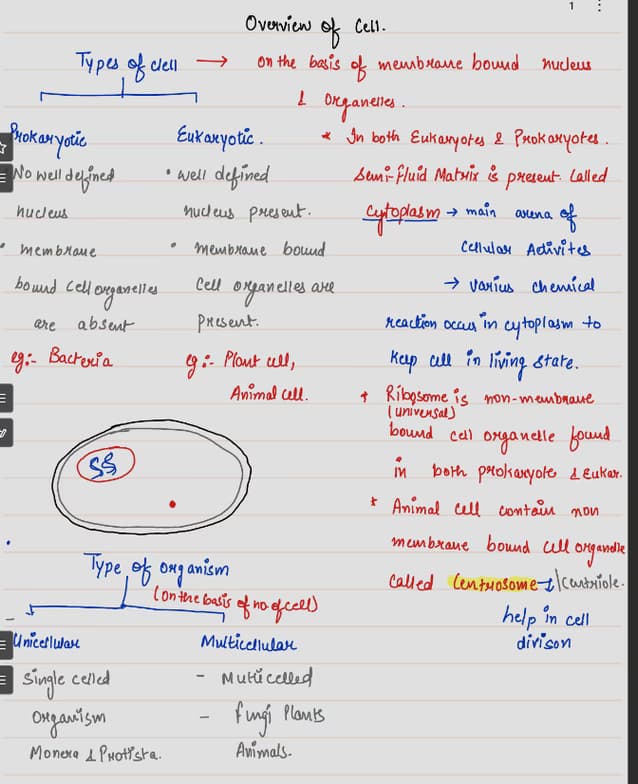 1
Overview of Cell.
Types of cell → on the basis of membrane bound nucleus
& Organelles.
Prokaryotic
No well defined
nucleus
• membrane
bound cell organelles
are absent
eg:- Bacteria
Eukaryotic.
• well defined
nucleus present.
• membrane bound
Cell organelles are
present.
eg:- Plant cell,
Animal cell.
* In both Eukaryotes & Prokaryotes.
Semi-fluid Matrix is present. Called
Cytoplasm → main arena of
Cellular Activites
→ varius chemical
reaction occus in cytoplasm to
Keep cell in living state.
* Ribosome is non-membrane
(universal)
bound cell organelle found
in both prokaryote & Eukar.
* Animal cell contain non
membrane bound cell organelle
called Centrosome →/Centriole.
help in cell
divison
Type of organism
(on the basis of no of cell)
Unicellular
Single celled
Organism
Monera & Protista.
Multicellular
- Multicelled
- fungi Plants
Animals.